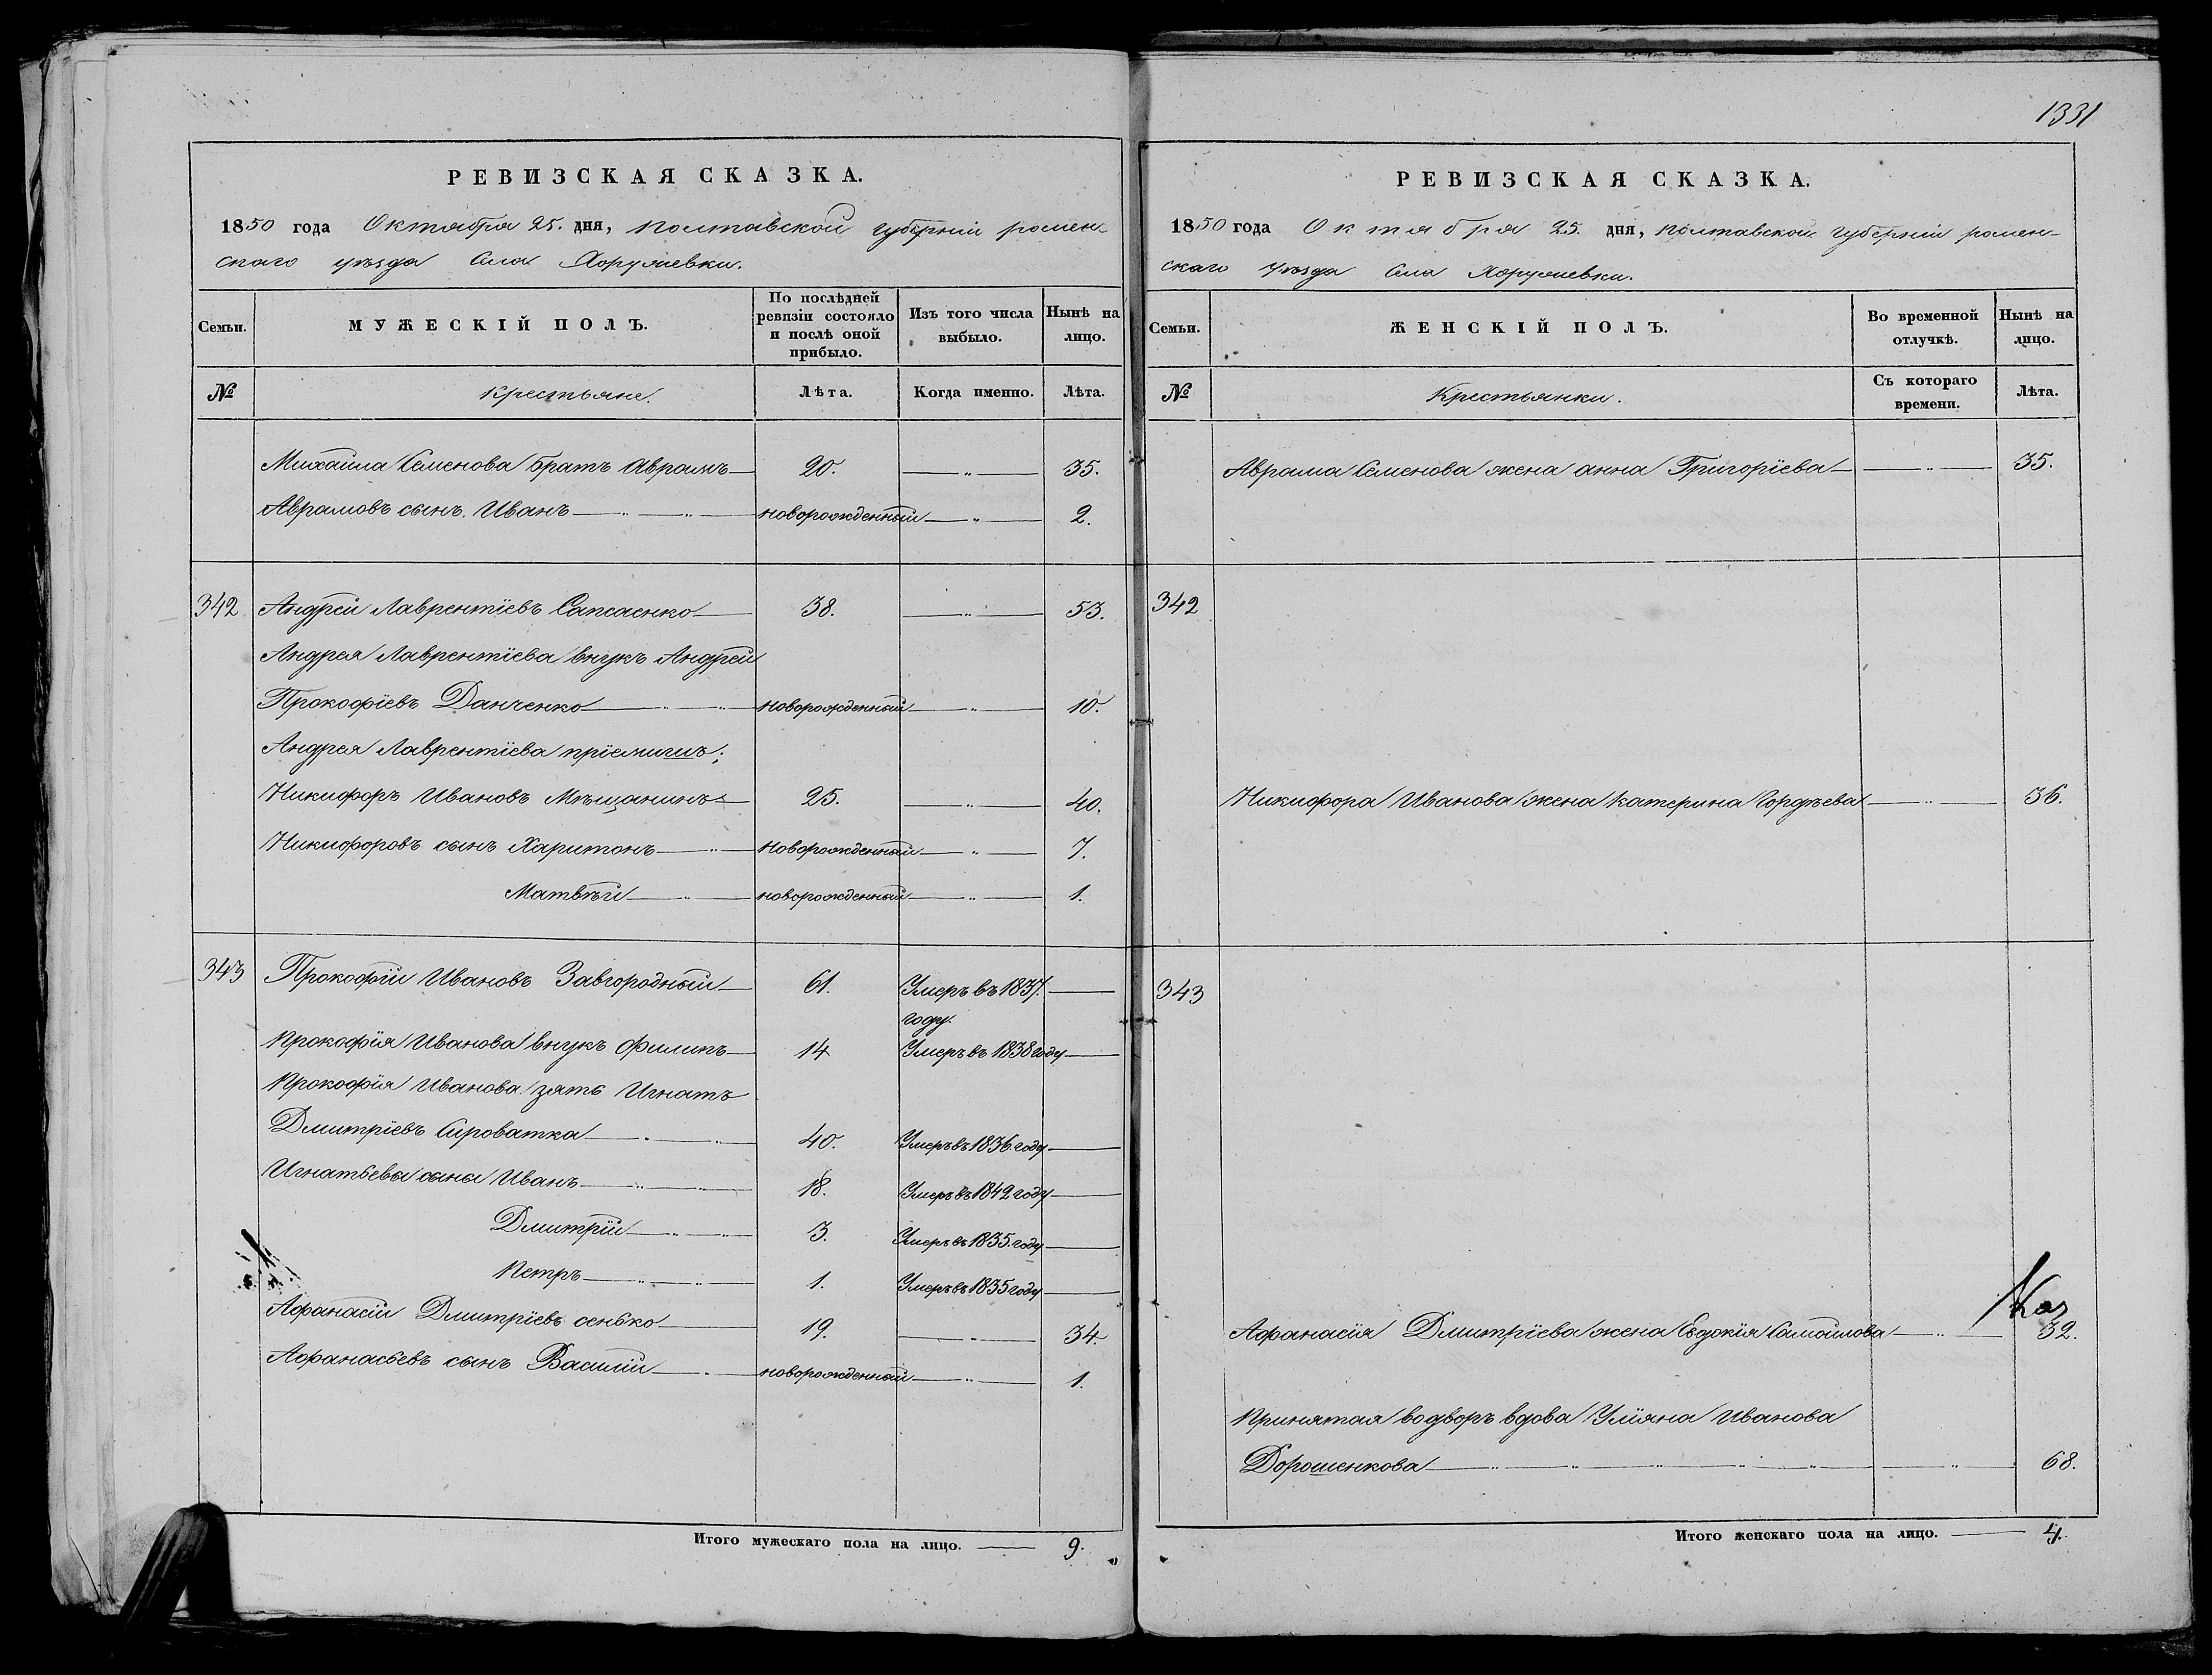 РЕВИЗСКАЯ СКАЗКА.
1850 года Октября 25. дня, полтавской губернiи ромен-
скаго уѣзда Села Хоружевки.
Семьи.
МУЖЕСКІЙ ПОЛЪ.
По послѣдней ревизіи состояло и послѣ оной прибыло.
Изъ того числа выбыло.
Нынѣ на лицо.
№ Крестьяне. Лѣта. Когда именно. Лѣта.
Михайла Семенова братъ Аврамъ 20. — „ — 35.
Аврамовъ сынъ Иванъ новорожденный — „ — 2.
342 Андрей Лаврентіевъ Сапсаенко 38. — „ — 53.
Андрея Лаврентіева внукъ Андрей
Прокофіевъ Данченко новорожденный — „ — 10.
Андрея Лаврентіева пріемишъ;
Никифоръ Ивановъ Мѣщанинъ 25. — „ — 40.
Никифоровъ сынъ Харитонъ новорожденный — „ — 7.
Матвѣй новорожденный — „ — 1.
343 Прокофій Ивановъ Завгородный 61. Умеръ въ 1837.
году.
Прокофія Иванова внукъ Филипъ 14 Умеръ въ 1838 году
Прокофія Иванова зять Игнатъ
Дмитріевъ Сироватка 40. Умеръ въ 1836. году
Игнатьевы сыны Иванъ 18. Умеръ въ 1842 году
Дмитрій 3. Умеръ въ 1835. году
Петръ 1. Умеръ въ 1835 году
Афанасій Дмитріевъ сенько 19. — „ — 34.
Афанасьевъ сынъ Василій новорожденный — „ — 1.
Итого мужескаго пола на лицо. — 9.
1331
РЕВИЗСКАЯ СКАЗКА.
1850 года Октября 25. дня, полтавской губерніи ромен-
скаго уѣзда Села Хоружевки.
Семьи.
ЖЕНСКІЙ ПОЛЪ.
Во временной отлучкѣ.
Нынѣ на лицо.
№ Крестьянки. Съ котораго времени. Лѣта.
Аврама Семенова жена анна Григоріева — „ — 35.
342
Никифора Иванова жена катерина Гордѣева — „ — 36.
343
Афанасія Дмитріева жена Евдокія Самойлова — „ — 32.
Принятая водворъ вдова Уліяна Иванова
Дорошенкова — „ — 68.
Итого женскаго пола на лицо. — 4.